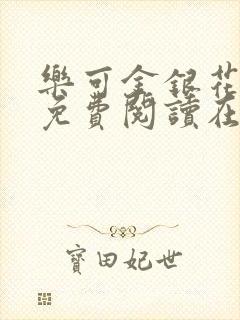 樂可金銀花
免費閱讀在
寶田妃世